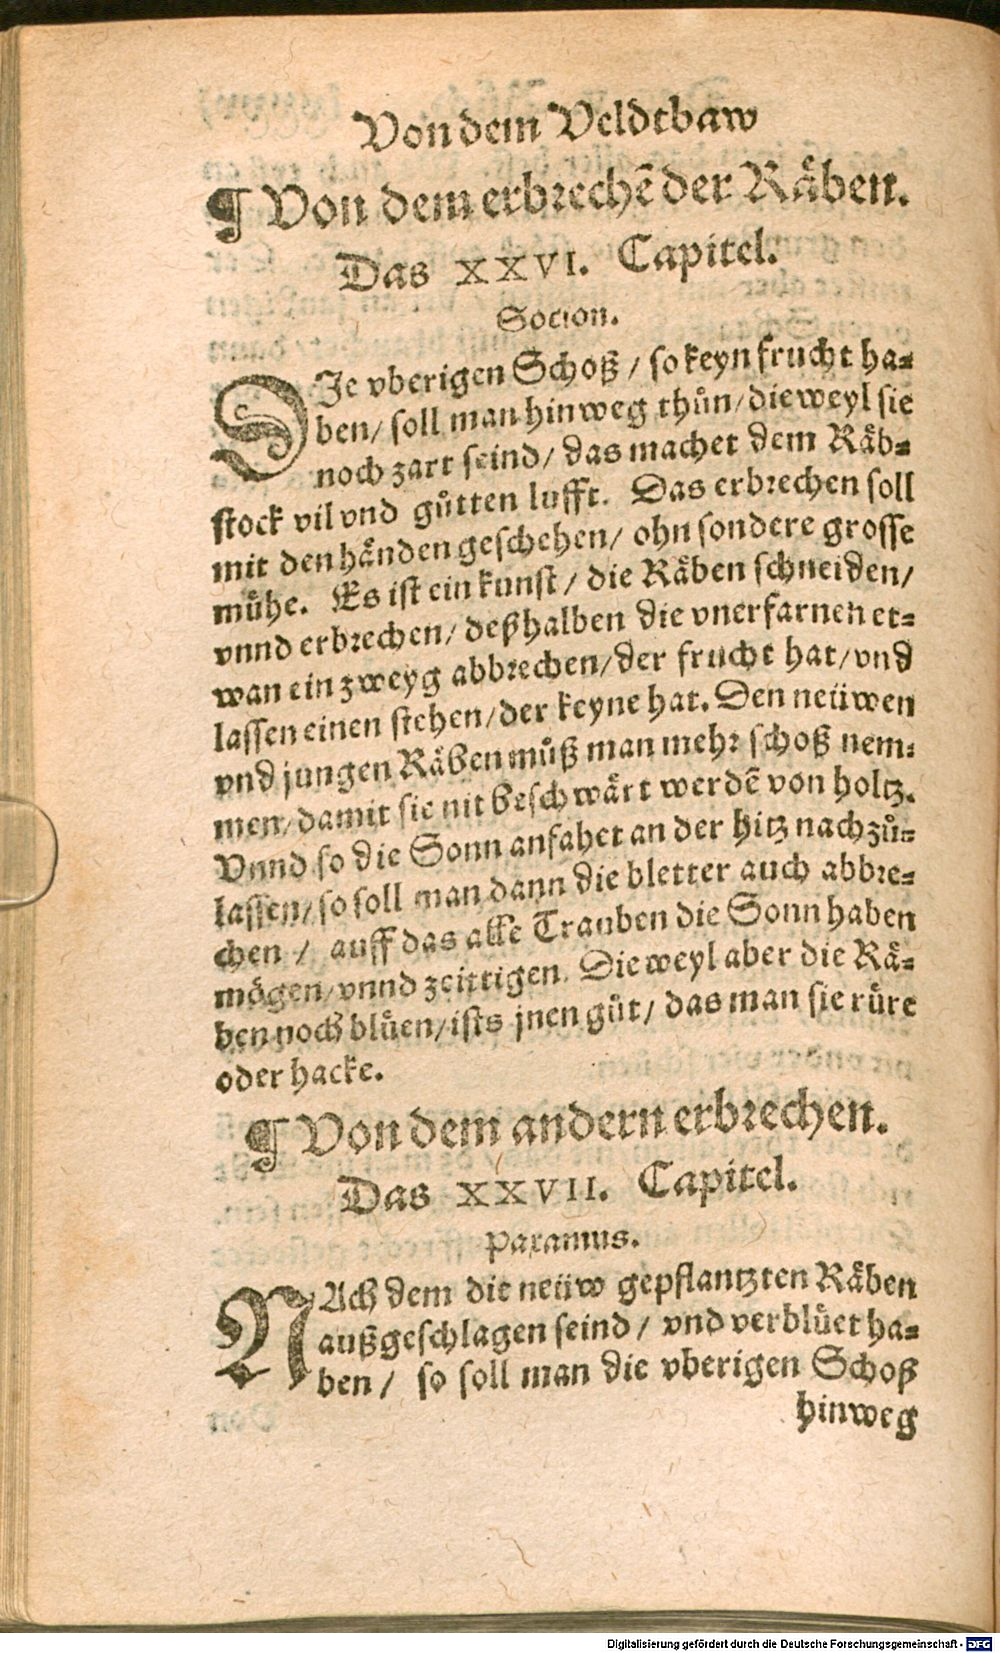 Von dem Veldtbaw
¶ Von dem erbrechē der Räben.
Das XXVI. Capitel.
Socion.
DIe vberigen Schoß / so keyn frucht ha-
ben / soll man hinweg thůn / dieweyl sie
noch zart seind / das machet dem Räb-
stock vil vnd gůtten lufft. Das erbrechen soll
mit den händen geschehen / ohn sondere grosse
mühe. Es ist ein kunst / die Räben schneiden /
vnnd erbrechen / deßhalben die vnerfarnen et-
wan ein zweyg abbrechen / der frucht hat / vnd
lassen einen stehen / der keyne hat. Den neüwen
vnd jungen Räben můß man mehr schoß nem-
men / damit sie nit beschwärt werdē von holtz.
Vnnd so die Sonn anfahet an der hitz nachzů-
lassen / so soll man dann die bletter auch abbre-
chen / auff das alle Trauben die Sonn haben
mögen / vnnd zeittigen. Dieweyl aber die Rä-
ben noch blůen / ists jnen gůt / das man sie rüre
oder hacke.
¶ Von dem andern erbrechen.
Das XXVII. Capitel.
Paxamus.
NAch dem die neüw gepflantzten Räben
außgeschlagen seind / vnd verblůet ha-
ben / so soll man die vberigen Schoß
hinweg
Digitalisierung gefördert durch die Deutsche Forschungsgemeinschaft - DFG